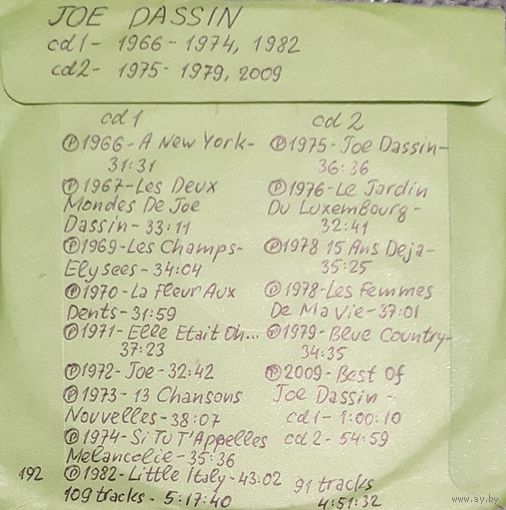 JOE DASSIN
cd1- 1966-1974, 1982
cd2- 1975-1979, 2009
cd1
Ⓟ1966-A New York-
31:31
Ⓟ1967-Les Deux
Mondes De Joe
Dassin-33:11
Ⓟ1969-Les Champs-
Elysees-34:04
Ⓟ1970-La Fleur Aux
Dents-31:59
Ⓟ1971-Elle Etait Oh...
37:23
Ⓟ1972-Joe-32:42
Ⓟ1973-13 Chansons
Nouvelles-38:07
Ⓟ1974-Si Tu T'Appelles
Melancolie-35:36
192 Ⓟ1982-Little Italy-43:02
109 tracks - 5:17:40
cd 2
Ⓟ1975-Joe Dassin-
36:36
Ⓟ1976-Le Jardin
Du Luxembourg-
32:41
Ⓟ1978 15 Ans Deja-
35:25
Ⓟ1978-Les Femmes
De Ma Vie-37:01
Ⓟ1979-Blue Country-
34:35
Ⓟ2009-Best Of
Joe Dassin-
cd1-1:00:10
cd2-54:59
91 tracks
4:51:32
www.ay.by